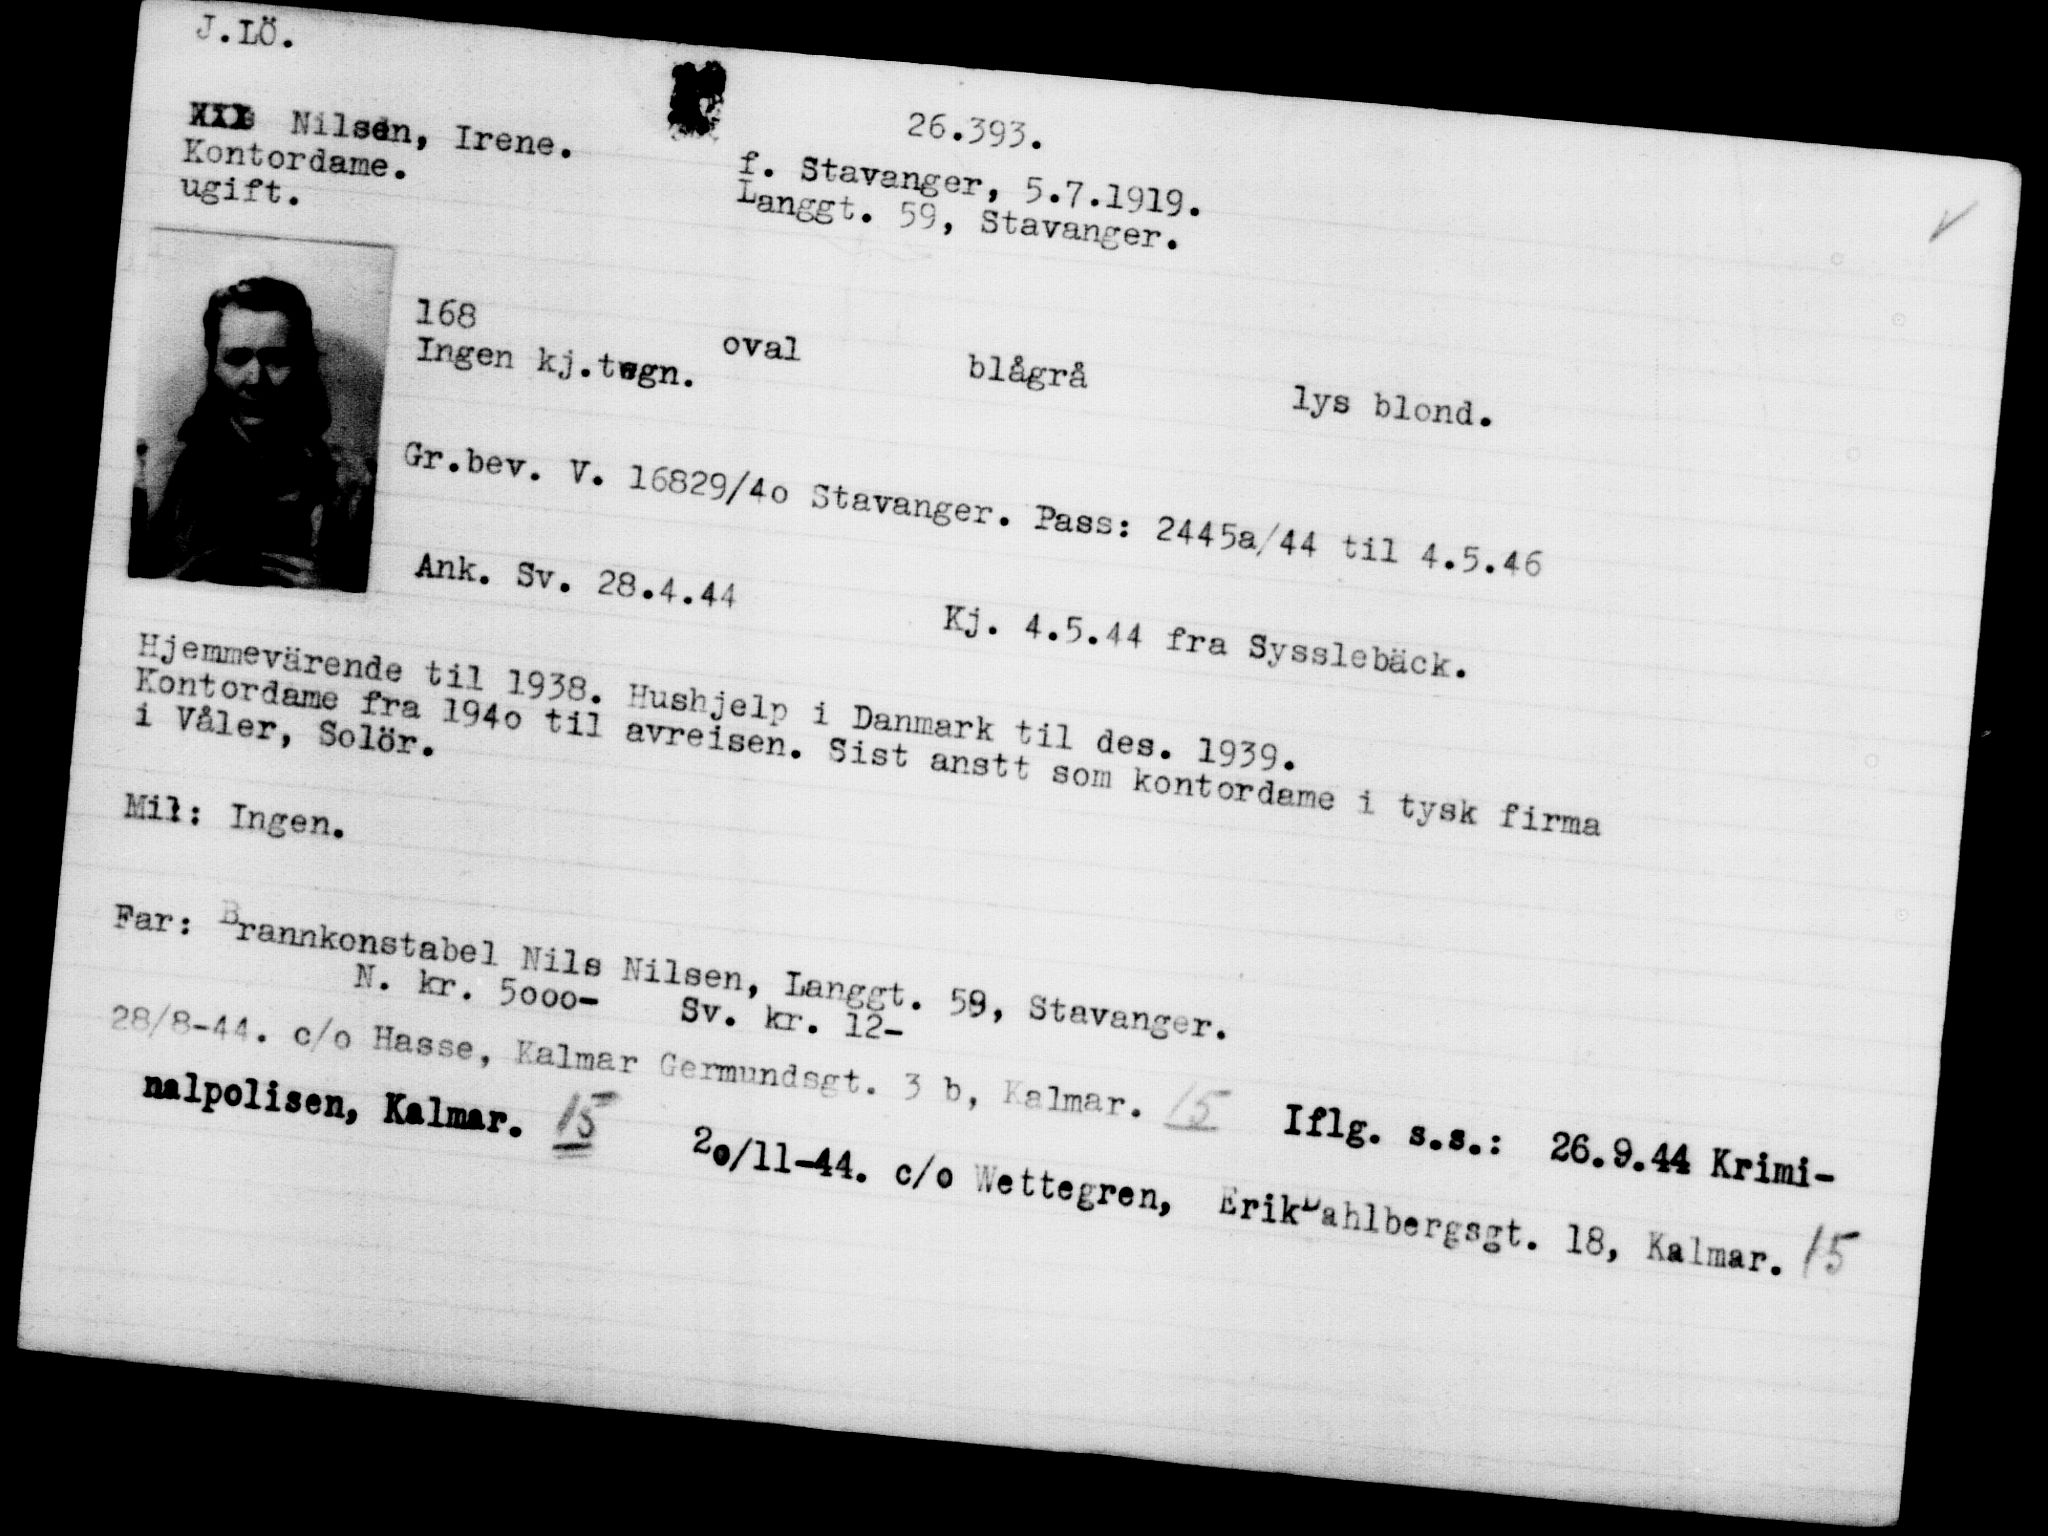 J.LÖ.
Nilsen, Irene.
26.393.
Kontordame.
f. Stavanger, 5.7.1919.
ugift.
Langgt. 59, Stavanger.
168 oval blågrå lys blond.
Ingen kj.tegn.
Gr.bev. V. 16829/4o Stavanger. Pass: 2445a/44 til 4.5.46
Ank. Sv. 28.4.44 Kj. 4.5.44 fra Sysslebäck.
Hjemmevärende til 1938. Hushjelp i Danmark til des. 1939.
Kontordame fra 194o til avreisen. Sist anstt som kontordame i tysk firma
i Våler, Solör.
Mil: Ingen.
Far: Brannkonstabel Nils Nilsen, Langgt. 59, Stavanger.
N. kr. 5ooo- Sv. kr. 12-
28/8-44. c/o Hasse, Kalmar Germundsgt. 3 b, Kalmar. 15 Iflg. s.s.: 26.9.44 Krimi-
nalpolisen, Kalmar. 15 2o/11-44. c/o Wettegren, Erik Dahlbergsgt. 18, Kalmar. 15